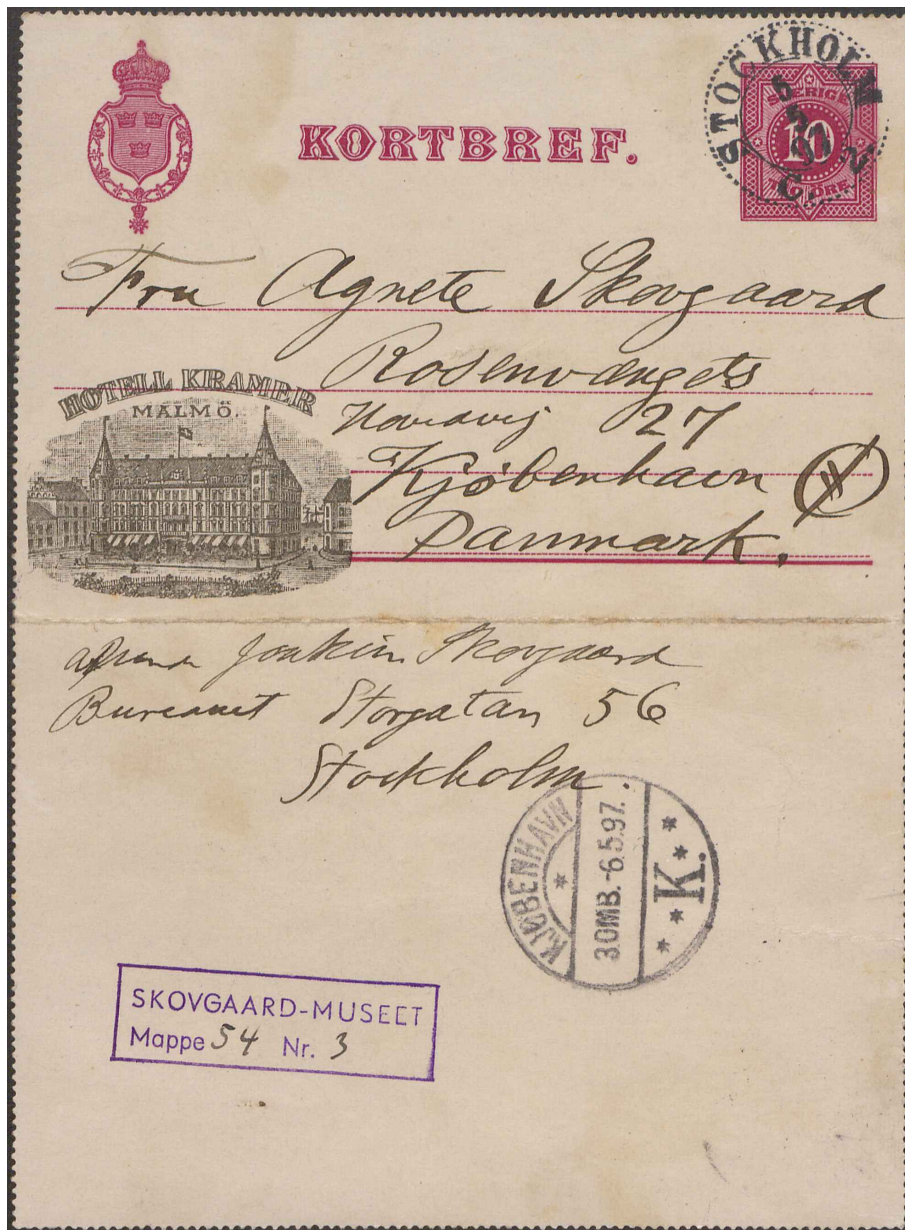 KORTBREF.
STOCKHOLM
5
5
97
C. 2
SVERIGE
10
TIO ÖRE
Fru Agnete Skovgaard
Rosenvængets
Hovedvej 27
Kjøbenhavn Ø
Danmark.
HOTELL KRAMER
MALMÖ.
Joakim Skovgaard
Bureauet Storgatan 56
Stockholm.
KJØBENHAVN
3.OMB.-6.5.97.
K.
SKOVGAARD-MUSEET
Mappe 54 Nr. 3